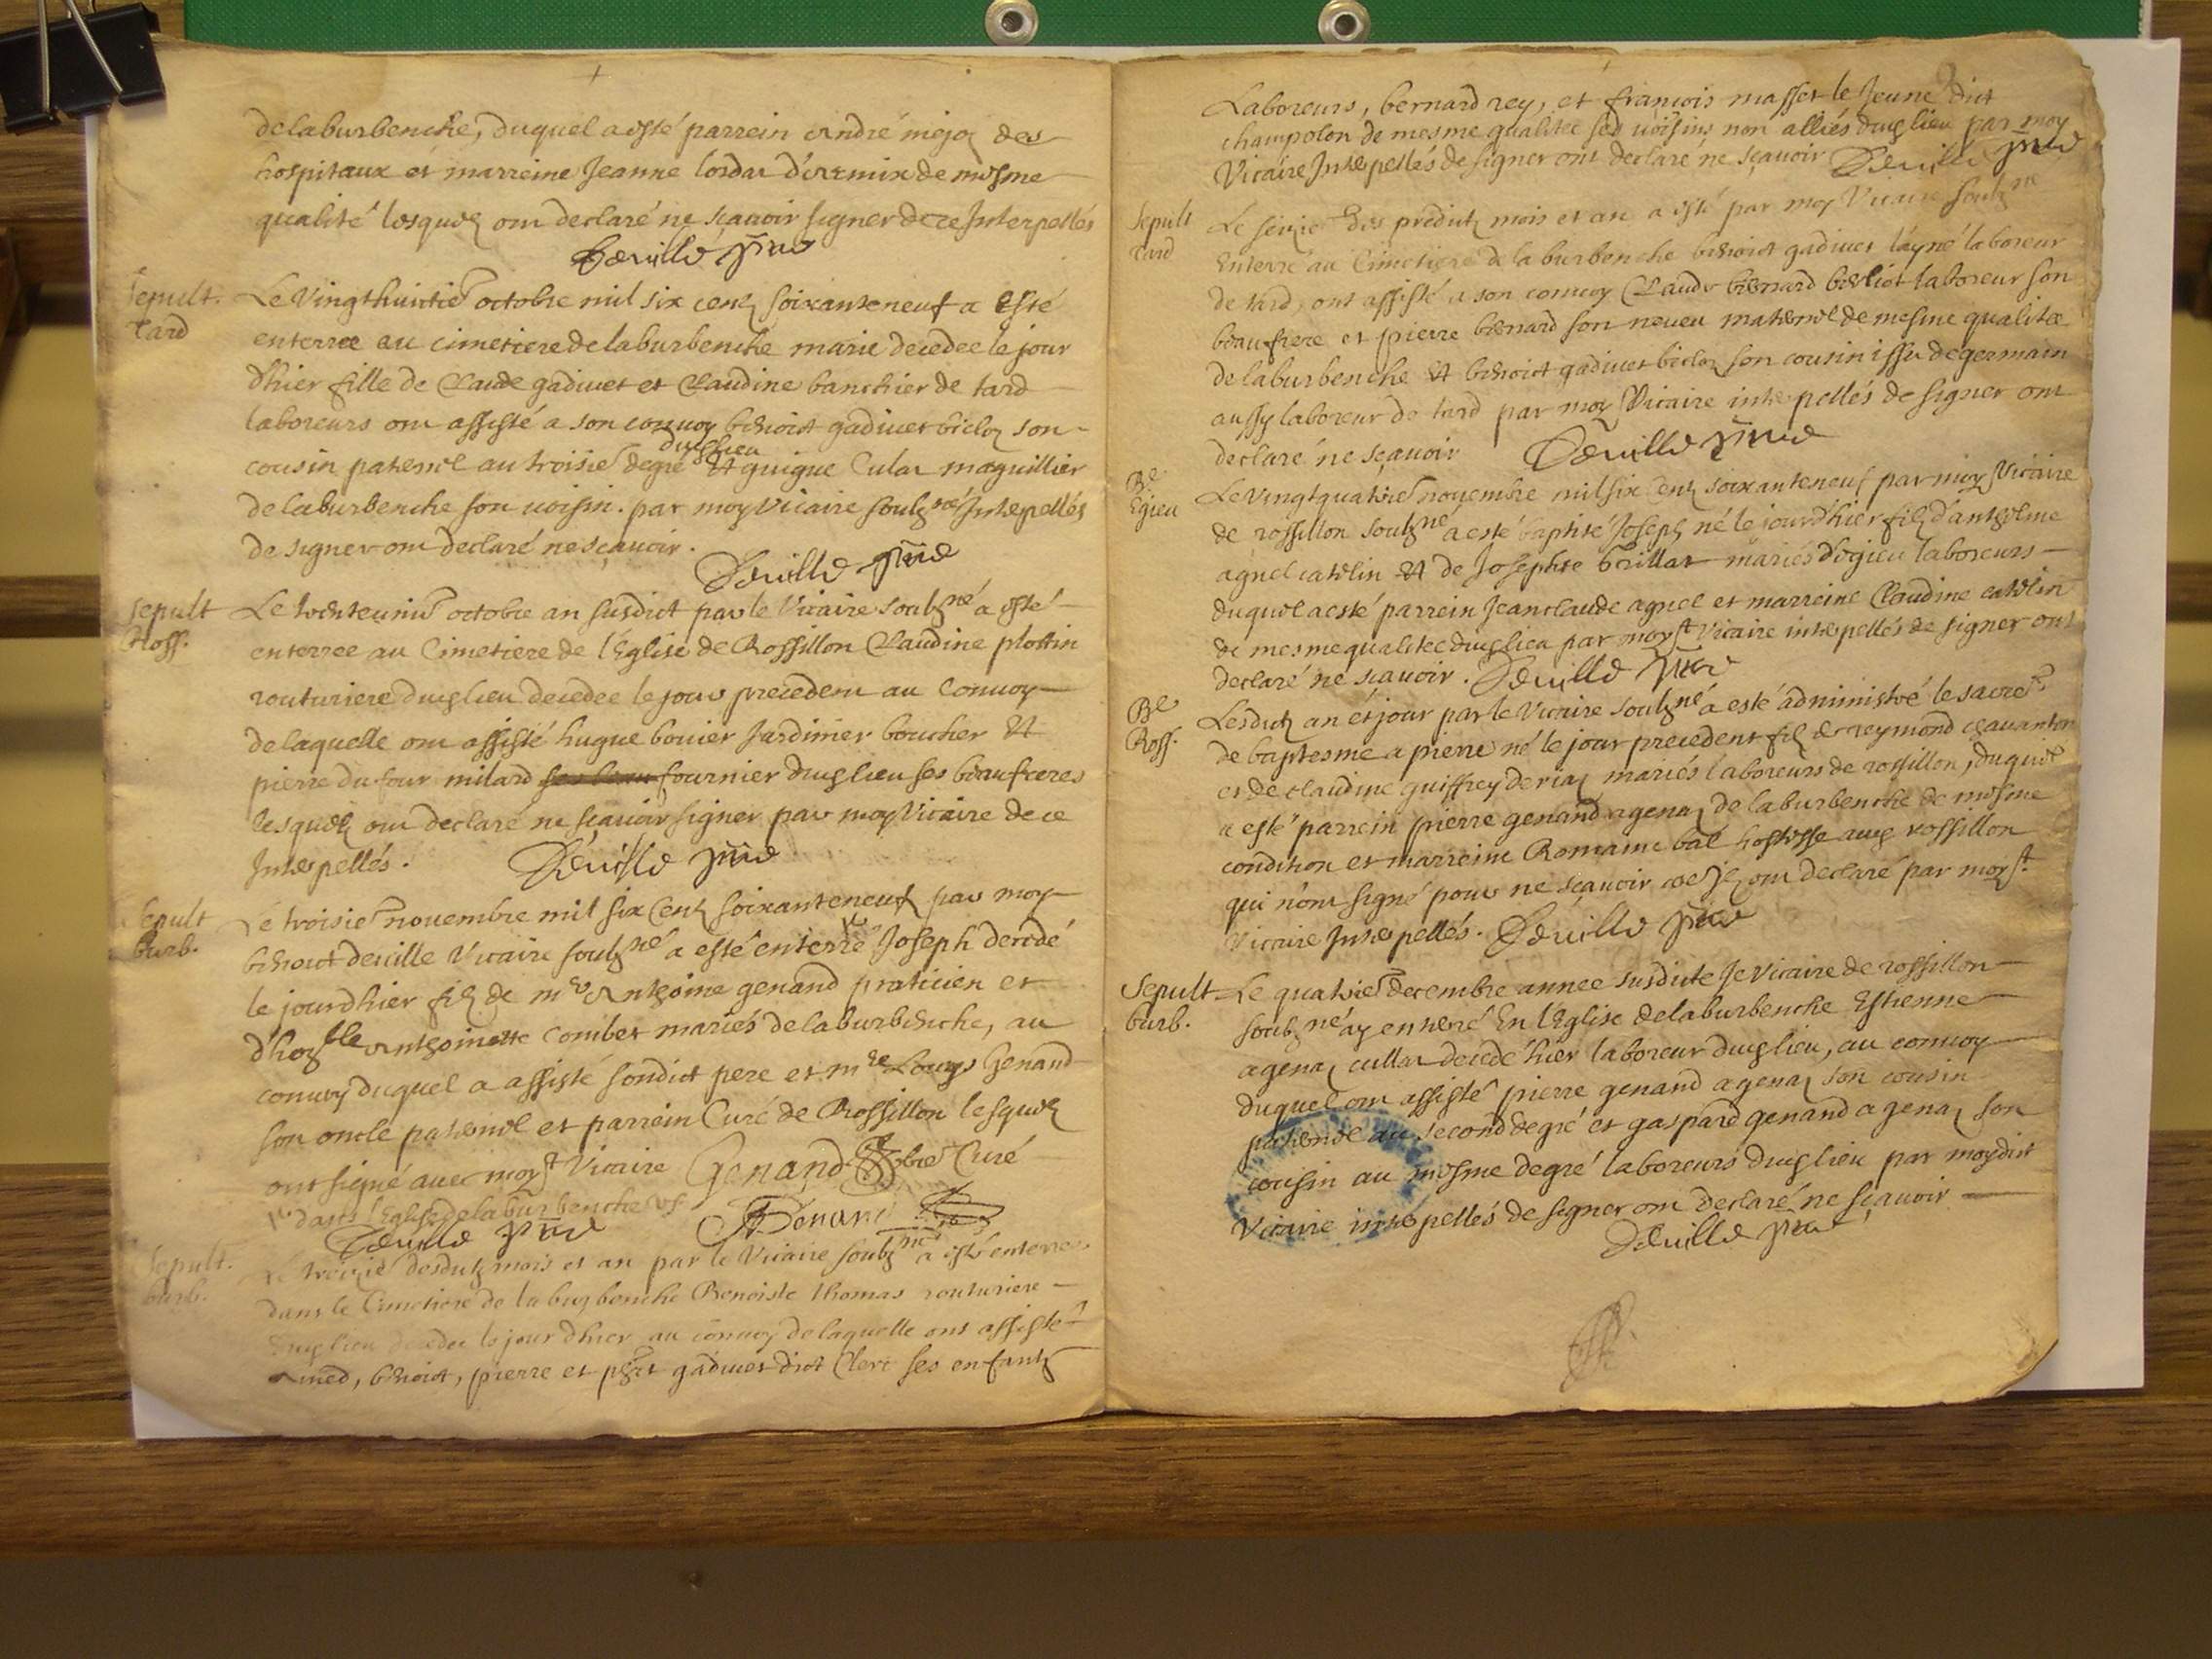 delaburbenche, duquel a esté parrein André mejoz des
hospitaux et marreine Jeanne lordar d'Armix de mesme
qualité lesquelz ont declaré ne sçavoir signer de ce Interpellés
Deville pnvre
Sepult.
Tard
Le Vingthuictie octobre mil six centz soixanteneuf a Esté
enterree au cimetiere delaburbenche marie decedee le jour
d'hier fille de Claude gadivet et Claudine banchier de tard
laboreurs ont assisté a son convoy benoict gadivet bicloz son
dudlieu
cousin paternel au troisie degré Et guigue Cular maguillier
delaburbenche son voisin. par moy Vicaire soubzné Interpellés
de signer ont declaré ne sçavoir.
Deville pnvre
Sepult
Ross.
Le trenteunie octobre an susdict par le Vicaire soubzné a esté
enterree au Cimetiere de l'Eglise de Rossillon Claudine plottin
routuriere dudlieu decedee le jour precedent au Convoy
delaquelle ont assisté hugue bovier Jardinier boucher Et
pierre du four milard fournier dudlieu ses beaufreres
lesquelz ont declaré ne sçavoir signer par moy Vicaire de ce
Interpellés.
Deville pnvre
Sepult
burb.
Le troisie novembre mil six Centz soixanteneuf par moy
benoict deville Vicaire soubzné a esté enterré Joseph decedé
le jourdhier filz de me Anthoine genand praticien et
d'hoble Anthoinette Combet mariés delaburbenche, au
convoy duquel a assisté sondict pere et mre Louys Genand
son oncle paternel et parrein Curé de Rossillon lesquelz
ont signé avec moy st Vicaire
Genand pbre Curé
dans l'Eglise delaburbenche
Deville pnvre
AGenand
Sepult.
burb.
Le treizie desdictz mois et an par le Vicaire soubzné a esté enterree
dans le Cimetiere de la burbenche Benoiste thomas routuriere
dudlieu decedee le jour dhier au convoy de laquelle ont assisté
Amed, benoict, pierre et gadivet dict Clerc ses enfantz
Laboreurs, bernard rey, et francois masset le Jeune dict
champolon de mesme qualitee ses voisins non alliés dudlieu par moy
Vicaire Interpellés de signer ont declaré ne sçavoir
Deville pnvre
Sepult
tard
Le seizie des predictz mois et an a esté par moy Vicaire soubzné
Enterré au Cimetiere de la burbenche benoict gadivet layné laboreur
de tard, ont assisté a son convoy Claude bernard berliot laboreur son
beaufrere et pierre bernard son neveu maternel de mesme qualite
delaburbenche Et benoict gadivet bicloz son cousin issu de germain
aussy laboreur de tard par moy Vicaire interpellés de signer ont
declaré ne sçavoir
Deville pnvre
Be
Egieu
Le vingtquatrie novembre mil six centz soixanteneuf par moy Vicaire
de rossillon soubzné a esté baptisé Joseph né le jourd'hier filz d'anthelme
agnel catelin Et de Josephte brillat mariés d'egieu laboreurs
duquel a esté parrein Jeanclaude agnel et marreine Claudine catelin
de mesme qualitee dudlieu par moy st Vicaire interpellés de signer ont
declaré ne sçavoir.
Deville pnvre
Be
Ross.
Lesdictz an et jour par le Vicaire soubzné a esté administré le sacre
de baptesme a pierre né le jour precedent filz de reymond chavanton
et de claudine guiffrey deriaz mariés laboreurs de rossillon, duquel
a esté parrein pierre genand agenaz de laburbenche de mesme
condition et marreine Romaine bal hostesse aud rossillon
qui n'ont signé pour ne sçavoir ont declaré par moy st.
Vicaire Interpellés.
Deville pnvre
Sepult
burb.
Le quatrie decembre annee susdicte Je Vicaire de rossillon
soubzné ay enterré En l'Eglise delaburbenche Estienne
agenaz cullar decedé hier laboreur dudlieu, au convoy
duquel ont assisté pierre genand agenaz son cousin
paternel au second degré et gaspard genand agenaz son
cousin au mesme degré laboreurs dudlieu par moydict
Vicaire interpellés de signer ont declaré ne sçavoir
Deville pnvre